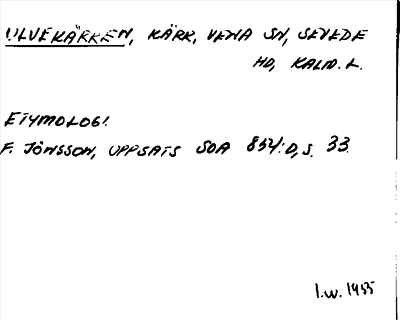 ULVEKÄRREN, KÄRR, VENA SN, SEVEDE
HD, KALM. L.
ETYMOLOGI
F. JÖNSSON, UPPSATS SOA 854:D, S. 33.
I.W. 1955